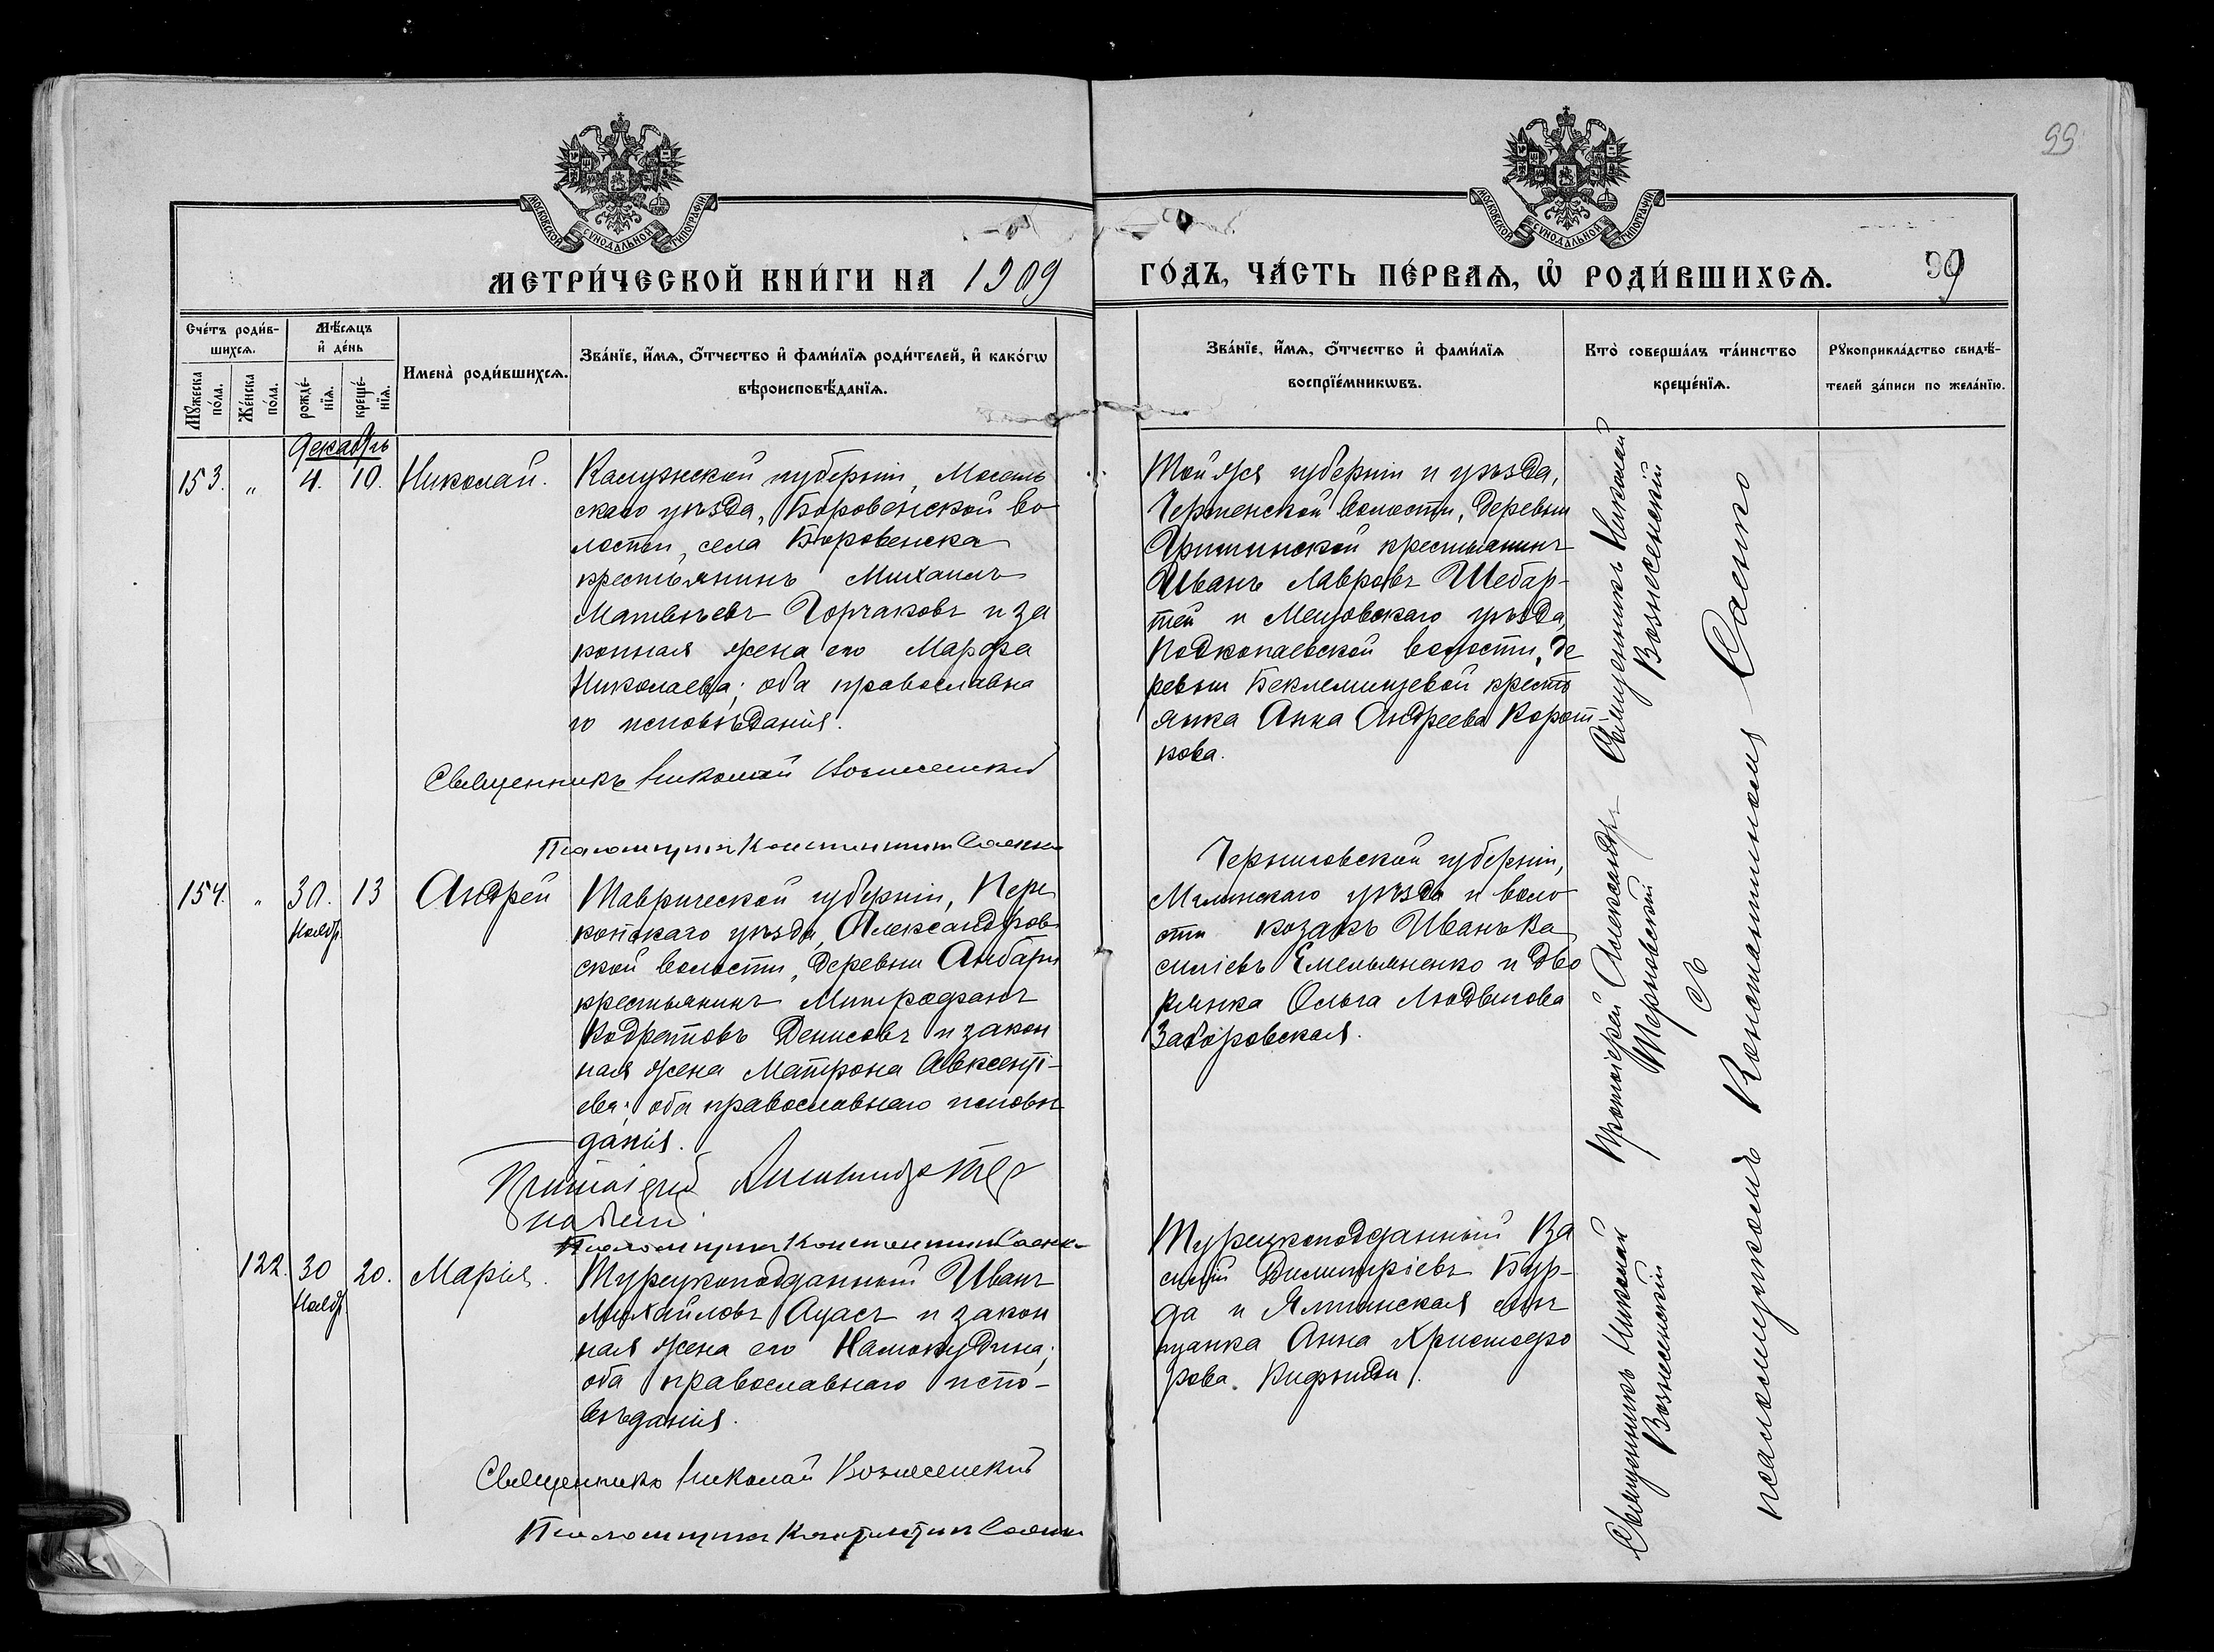 99
МОСКОВСКОЙ СѴНОДАЛЬНОЙ ТИПОГРАФІИ
МОСКОВСКОЙ СѴНОДАЛЬНОЙ ТИПОГРАФІИ
МЕТРИ́ЧЕСКОЙ КНИ́ГИ НА 1909
ГО́ДЪ, ЧА́СТЬ ПЕ́РВАѦ, Ѡ РОДИ́ВШИХСѦ. 99
Сче́тъ роди́в-
шихсѧ.
Мꙋ́жеска по́ла.
Же́нска по́ла.
Мѣ́сѧцъ
и де́нь
рожде́-
нїѧ.
креще́-
нїѧ.
Имена̀ роди́вшихсѧ.
Зва́нїе, и́мѧ, о́тчество и фами́лїѧ роди́телей, и како́гѡ
вѣроисповѣ́данїѧ.
Зва́нїе, и́мѧ, о́тчество и фами́лїѧ
воспрїе́мникѡвъ.
Кто̀ соверша́лъ та́инство
креще́нїѧ.
Рꙋкоприкла́дство свидѣ́-
телей за́писи по жела́нїю.
Декабрь
153. „ 4. 10. Николай.
Калужской губерніи, Мосаль
скаго уѣзда, Боровенской во
лости, села Боровенска
крестьянинъ Михаилъ
Матвѣевъ Горчаковъ и за
конная жена его Марфа
Николаева; оба православна
го исповѣданія.
Священникъ Николай Вознесенскій
Псаломщикъ Константинъ Саенко
Той же губерніи и уѣзда,
волости, деревни
крестьянинъ
Иванъ Лавровъ Шебар-
и Мещовскаго уѣзда,
Подкопаевской волости, де
ревни Беклемищевой кресть
янка Анна Андреева Корот-
кова.
Священникъ Николай
Вознесенскій
154. „ 30. 13 Андрей
Ноябр.
Таврической губерніи, Пере
копскаго уѣзда, Александров
ской волости, деревни Анбары
крестьянинъ Митрофанъ
Кодратовъ Денисовъ и закон
ная жена Матрона Авксенті-
ева; оба православнаго исповѣ
данія.
Протоіерей Александръ Тер
новскій
Псаломщикъ Константинъ Саенко
Черниговской губерніи,
Мглинскаго уѣзда и воло
сти козакъ Иванъ Ва
силіевъ Емельяненко и дво
рянка Ольга Людвигова
Заборовская.
Протоіерей Александръ
Терновскій
122. 30 20. Марія.
Ноябр.
Турецкоподданный Иванъ
Михайловъ Ацасъ и закон
ная жена его
оба православнаго испо-
вѣданія.
Священникъ Николай Вознесенскій
Псаломщикъ Константинъ Саенко
Турецкоподданный Ва
силій Димитріевъ Бур-
да и Ялтинская мѣ
щанка Анна Христофо
рова
Священникъ Николай
Вознесенскій
съ
псаломщикомъ Константиномъ Саенко